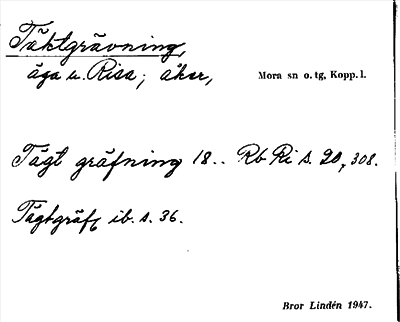 Täktgrävning,
äga u. Risa; åker, Mora sn o. tg, Kopp. l.
Tägt gräfning 18.. Rb Ri s. 20, 308.
Tägtgräfg ib. s. 36.
Bror Lindén 1947.